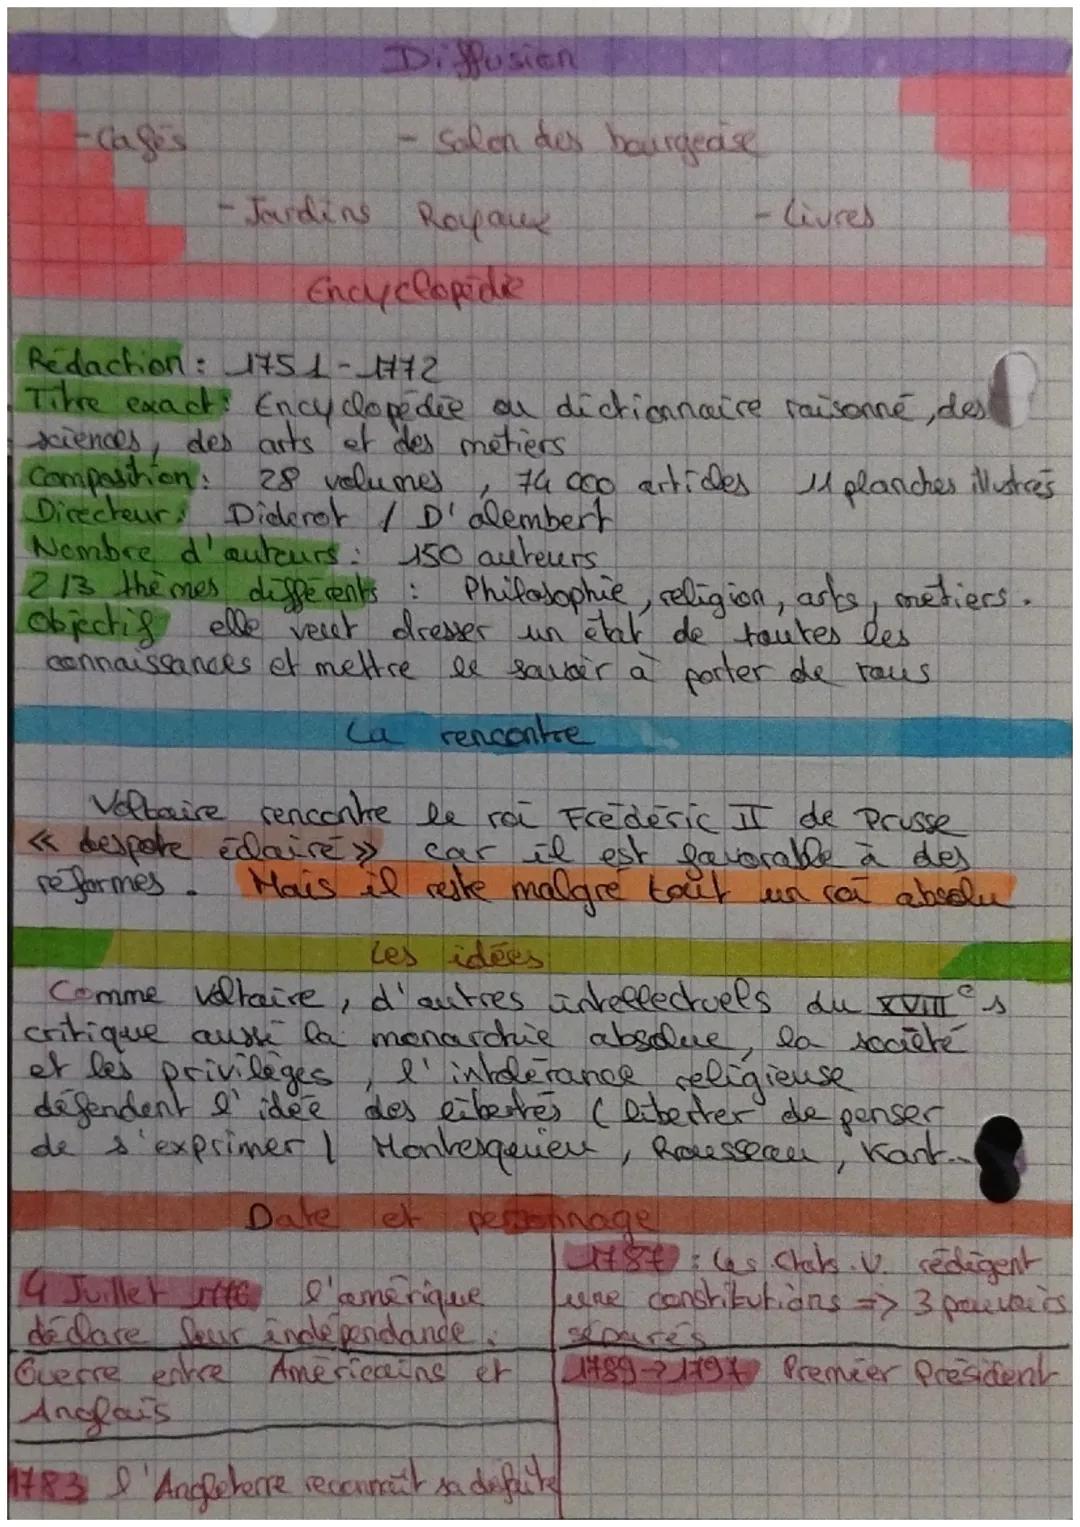 Diffusion
- Cafés
- Salon des bourgeoise
- Jardins Royaux
- Livres
Encyclopédie
Rédaction : 1751-1772
Titre exact : Encyclopédie ou dictionnaire raisonné, des
sciences, des arts et des métiers
Composition : 28 volumes, 74 000 articles 11 planches illustrés
Directeur : Diderot / D'alembert
Nombre d'auteurs : 150 auteurs
213 thèmes différents : Philosophie, religion, arts, métiers.
Objectif elle veut dresser un état de toutes les
connaissances et mettre le savoir à porter de tous
La rencontre
Voltaire rencontre le roi Frédéric II de Prusse
« despote éclairé » car il est favorable à des
réformes. Mais il reste malgré tout un roi absolu
Les idées
Comme Voltaire, d'autres intellectuels du XVIIIe s
critique aussi la monarchie absolue, la société
et les privilèges, l'intolérance religieuse
défendent l'idée des libertés (liberter de penser
de s'exprimer) Montesquieu, Rousseau, Kant...
Date et personnage
4 Juillet 1776 l'amérique
déclare leur indépendance.
Guerre entre Américains et
Anglais
1783 l'Angleterre reconnaît sa défaite
1787 : Les Etats.U. rédigent
une constitutions => 3 pouvoirs
séparés
1789->1797 Premier Président